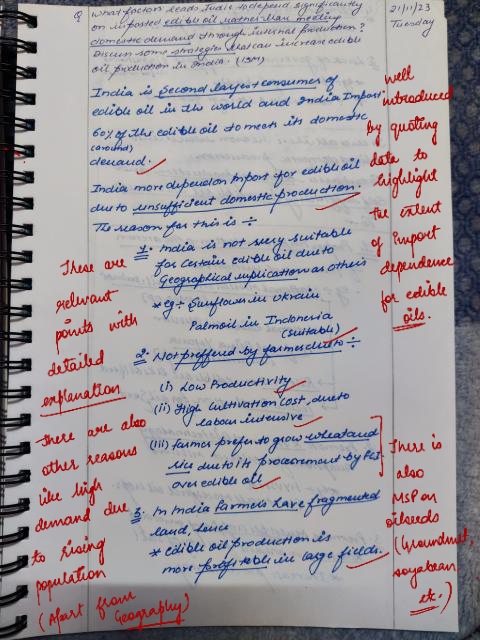 Q What factors leads India to depend significantly
on imported edible oil rather than meeting
domestic demand through internal production?
Discuss some strategies that can increase edible
oil production in India. (15M)
21/11/23
Tuesday
India is second largest consumer of
edible oil in the world and India Import
60% of the edible oil to meets its domestic
(around)
demand.
India more depend on Import for edible oil
due to unsufficient domestic production.
The reason for this is ÷
1. India is not very suitable
for certain edible oil due to
Geographical implication as others
* eg ÷ Sunflower in Ukrain
Palmoil in Indonesia
(suitable)
2. Not preffered by farmers due to ÷
(i) Low Productivity
(ii) High Cultivation Cost, due to
labour intensive
(iii) farmer prefer to grow wheat and
rice due to its procurement by FCI
over edible oil
3. In India Farmers have fragmented
land, hence
* edible oil production is
more profitable in large fields.
well
introduced
by quoting
data to
highlight
the extent
of import
dependence
for edible
oils.
These are
relevant
points with
detailed
explanation
There are also
other reasons
like high
demand due
to rising
population
(Apart from
Geography)
There is
also
MSP on
oilseeds
(Groundnut,
soyabean
etc.)